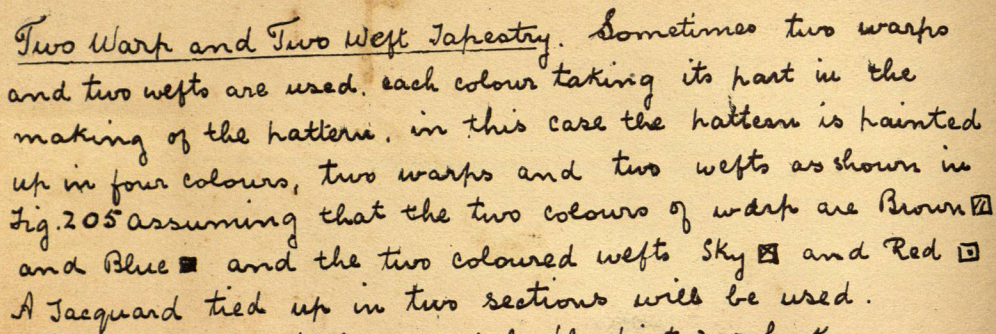 Two Warp and Two Weft Tapestry. Sometimes two warps
and two wefts are used. each colour taking its part in the
making of the pattern. in this case the pattern is painted
up in four colours, two warps and two wefts as shown in
Fig. 205 assuming that the two colours of warp are Brown ▨
and Blue ■ and the two coloured wefts Sky ⊠ and Red ⊡
A Jacquard tied up in two sections will be used.